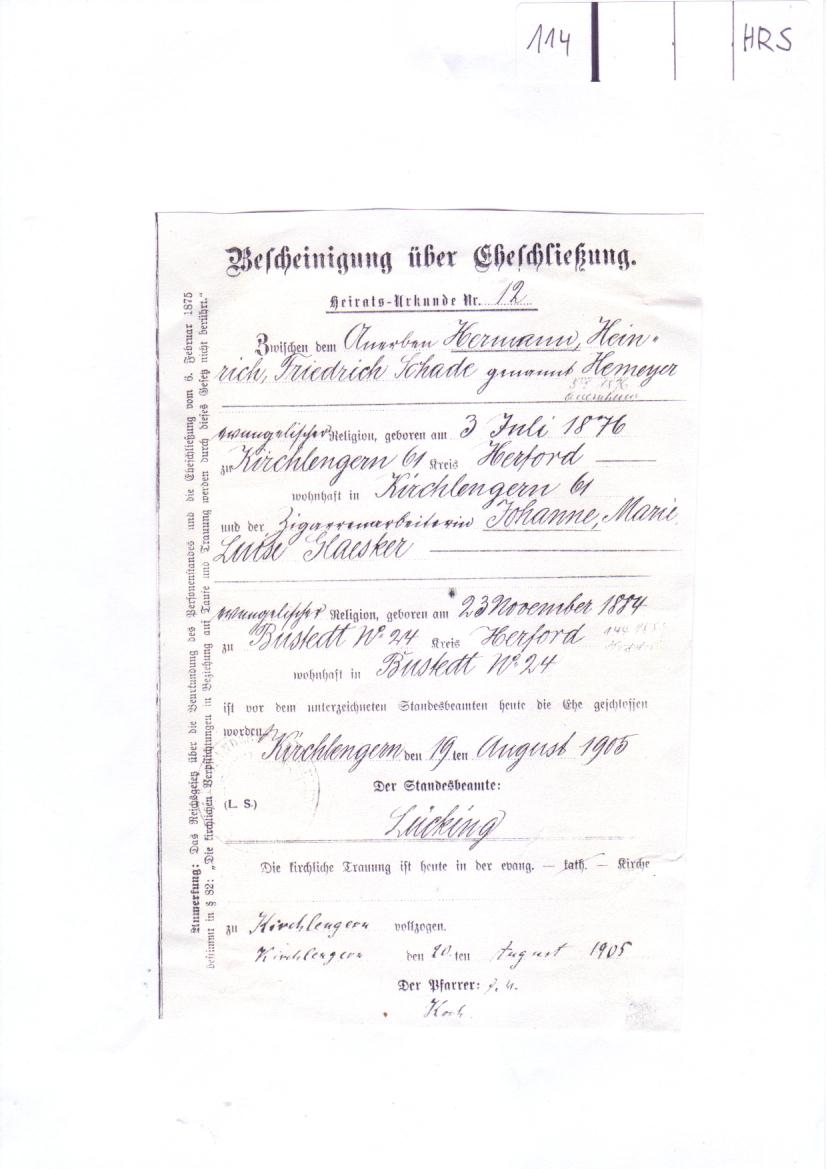 114 HRS
Bescheinigung über Eheschließung.
Heirats-Urkunde Nr. 12
Zwischen dem Anerben Hermann, Hein-
rich, Friedrich Schade genannt Hemeyer
evangelischer Religion, geboren am 3 Juli 1876
zu Kirchlengern 61 Kreis Herford
wohnhaft in Kirchlengern 61
und der Zigarrenarbeiterin Johanne, Marie
Luise Glaesker
evangelischer Religion, geboren am 23 November 1884
zu Bustedt No 24 Kreis Herford
wohnhaft in Bustedt No 24
ist vor dem unterzeichneten Standesbeamten heute die Ehe geschlossen
worden.
Kirchlengern den 19 ten August 1905
Der Standesbeamte:
(L. S.)
Lücking
Die kirchliche Trauung ist heute in der evang. — kath. — Kirche
zu Kirchlengern vollzogen.
Kirchlengern den 20. ten August 1905
Der Pfarrer:
Koch.
Anmerkung: Das Reichsgesetz über die Beurkundung des Personenstandes und die Eheschließung vom 6. Februar 1875
bestimmt in § 82: „Die kirchlichen Verpflichtungen in Beziehung auf Taufe und Trauung werden durch dieses Gesetz nicht berührt.“